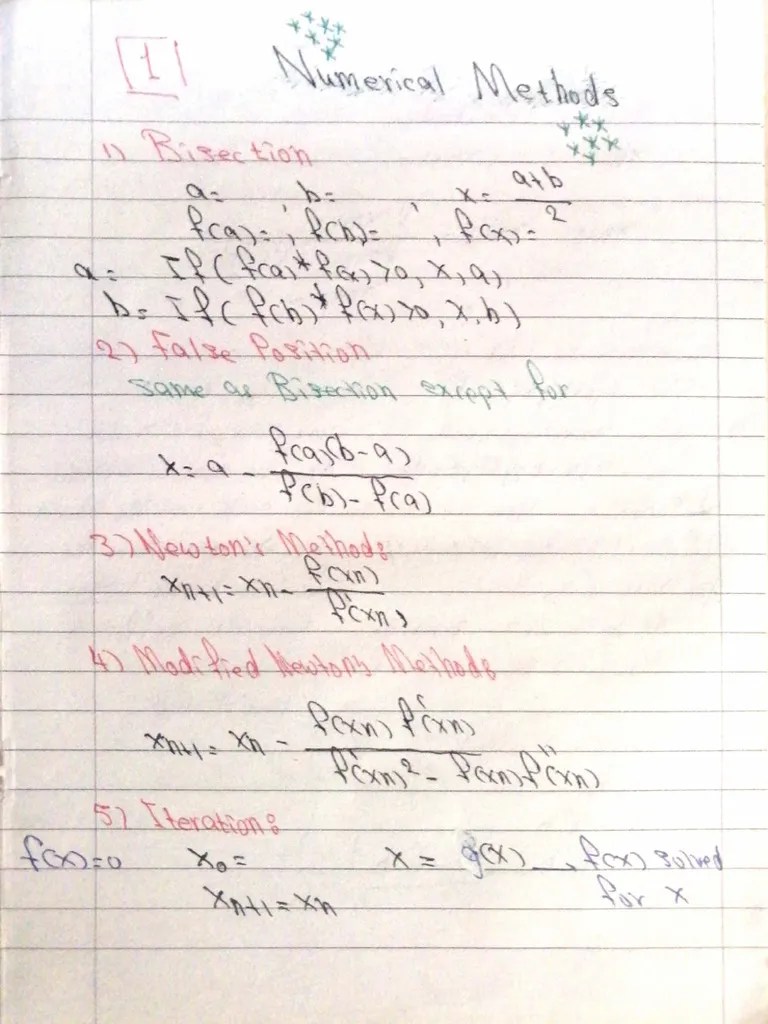 1
Numerical Methods
1) Bisection
a= , b= , x = a+b / 2
f(a)= , f(b)= , f(x)=
a= If(f(a)*f(x)>0, x, a)
b= If(f(b)*f(x)>0, x, b)
2) False Position
same as Bisection except for
x= a - f(a)(b-a) / f(b)-f(a)
3) Newton's Methods
xn+1 = xn - f(xn) / f'(xn)
4) Modified Newton's Methods
xn+1 = xn - f(xn) f'(xn) / f'(xn)² - f(xn)f''(xn)
5) Iteration:
f(x)=0 x₀= x = g(x) → f(x) solved
xn+1 = xn for x